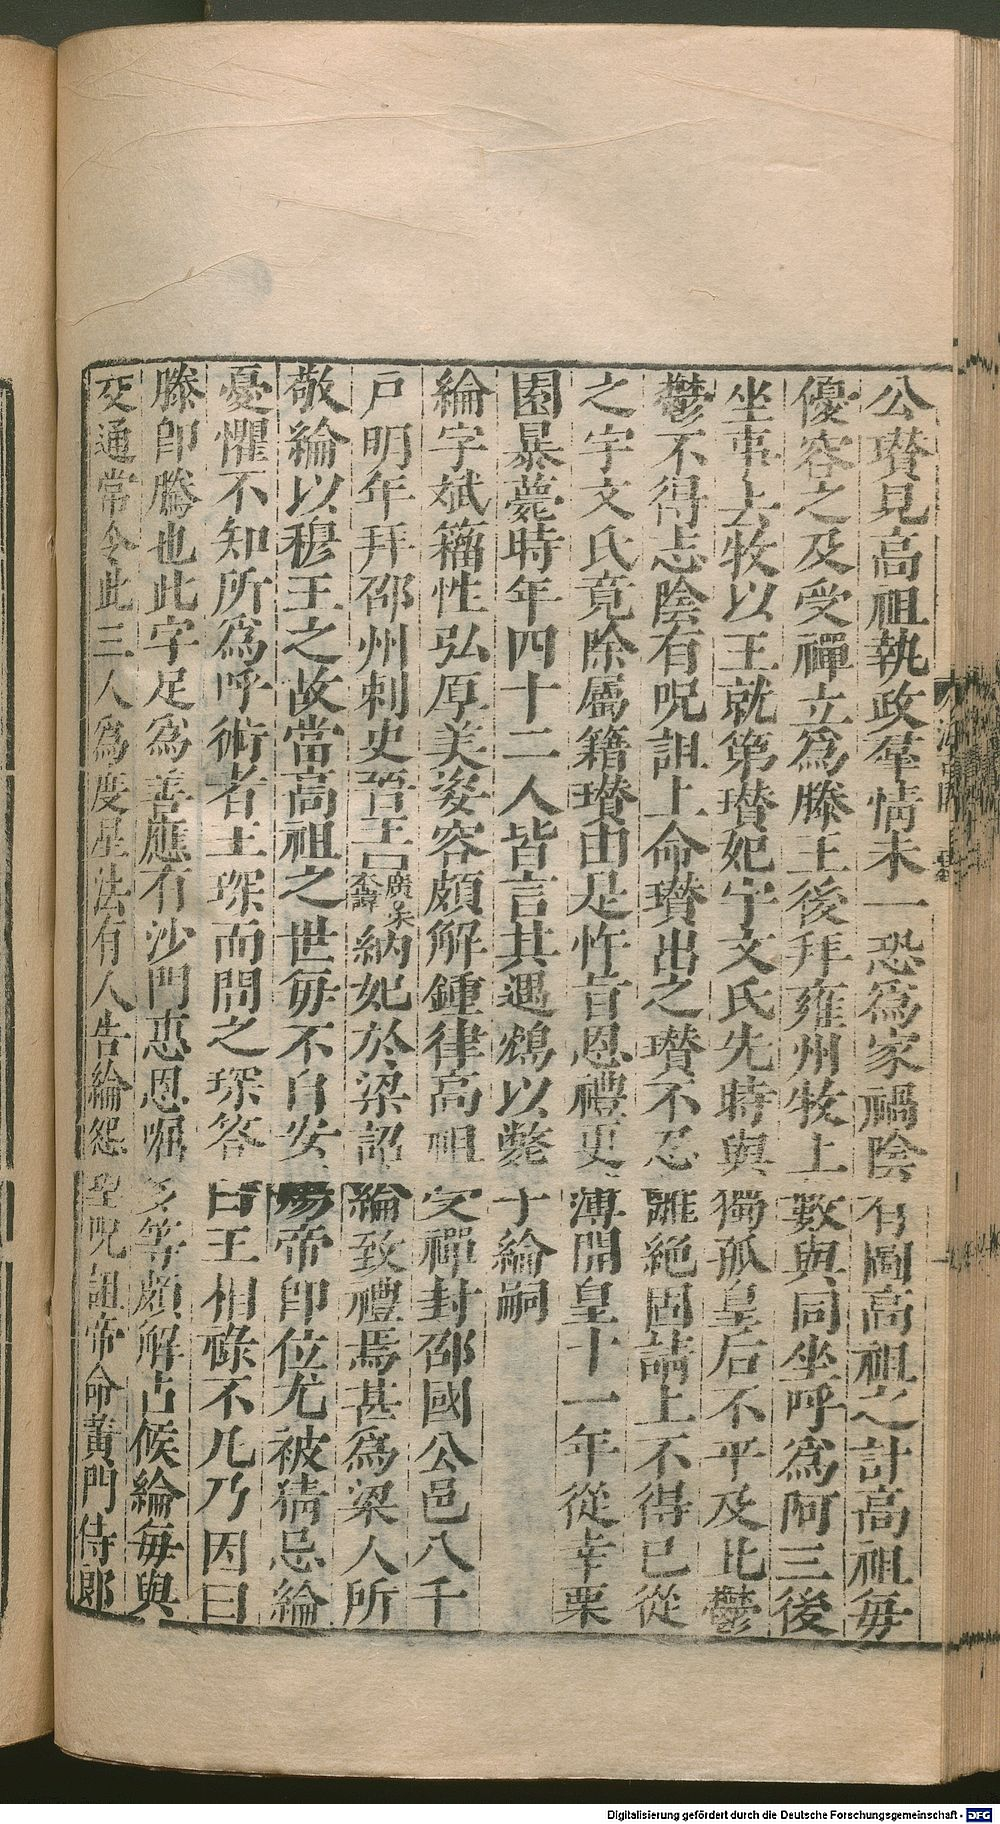 公瓚見高祖執政羣情未一恐爲家禍陰有圖高祖之計高祖每
優容之及受禪立爲滕王後拜雍州牧上數與同坐呼爲阿三後
坐事去牧以王就第瓚妃宇文氏先時與獨孤皇后不平及此鬱
鬱不得志陰有呪詛上命瓚出之瓚不忍離絶固請上不得已從
之宇文氏竟除屬籍瓚由是忤旨恩禮更薄開皇十一年從幸栗
園暴薨時年四十二人皆言其遇鴆以斃子綸嗣
綸字斌籀性弘厚美姿容頗解鍾律高祖受禪封邵國公邑八千
戶明年拜邵州刺史晉王廣納妃於梁詔綸致禮焉甚爲梁人所
敬綸以穆王之故當高祖之世每不自安煬帝即位尤被猜忌綸
憂懼不知所爲呼術者王琛而問之琛答曰王相祿不凡乃因曰
滕即騰也此字足爲善應有沙門惠恩崛多等頗解占候綸每與
交通常令此三人爲度星法有人告綸怨望呪詛帝命黄門侍郎
Digitalisierung gefördert durch die Deutsche Forschungsgemeinschaft - DFG